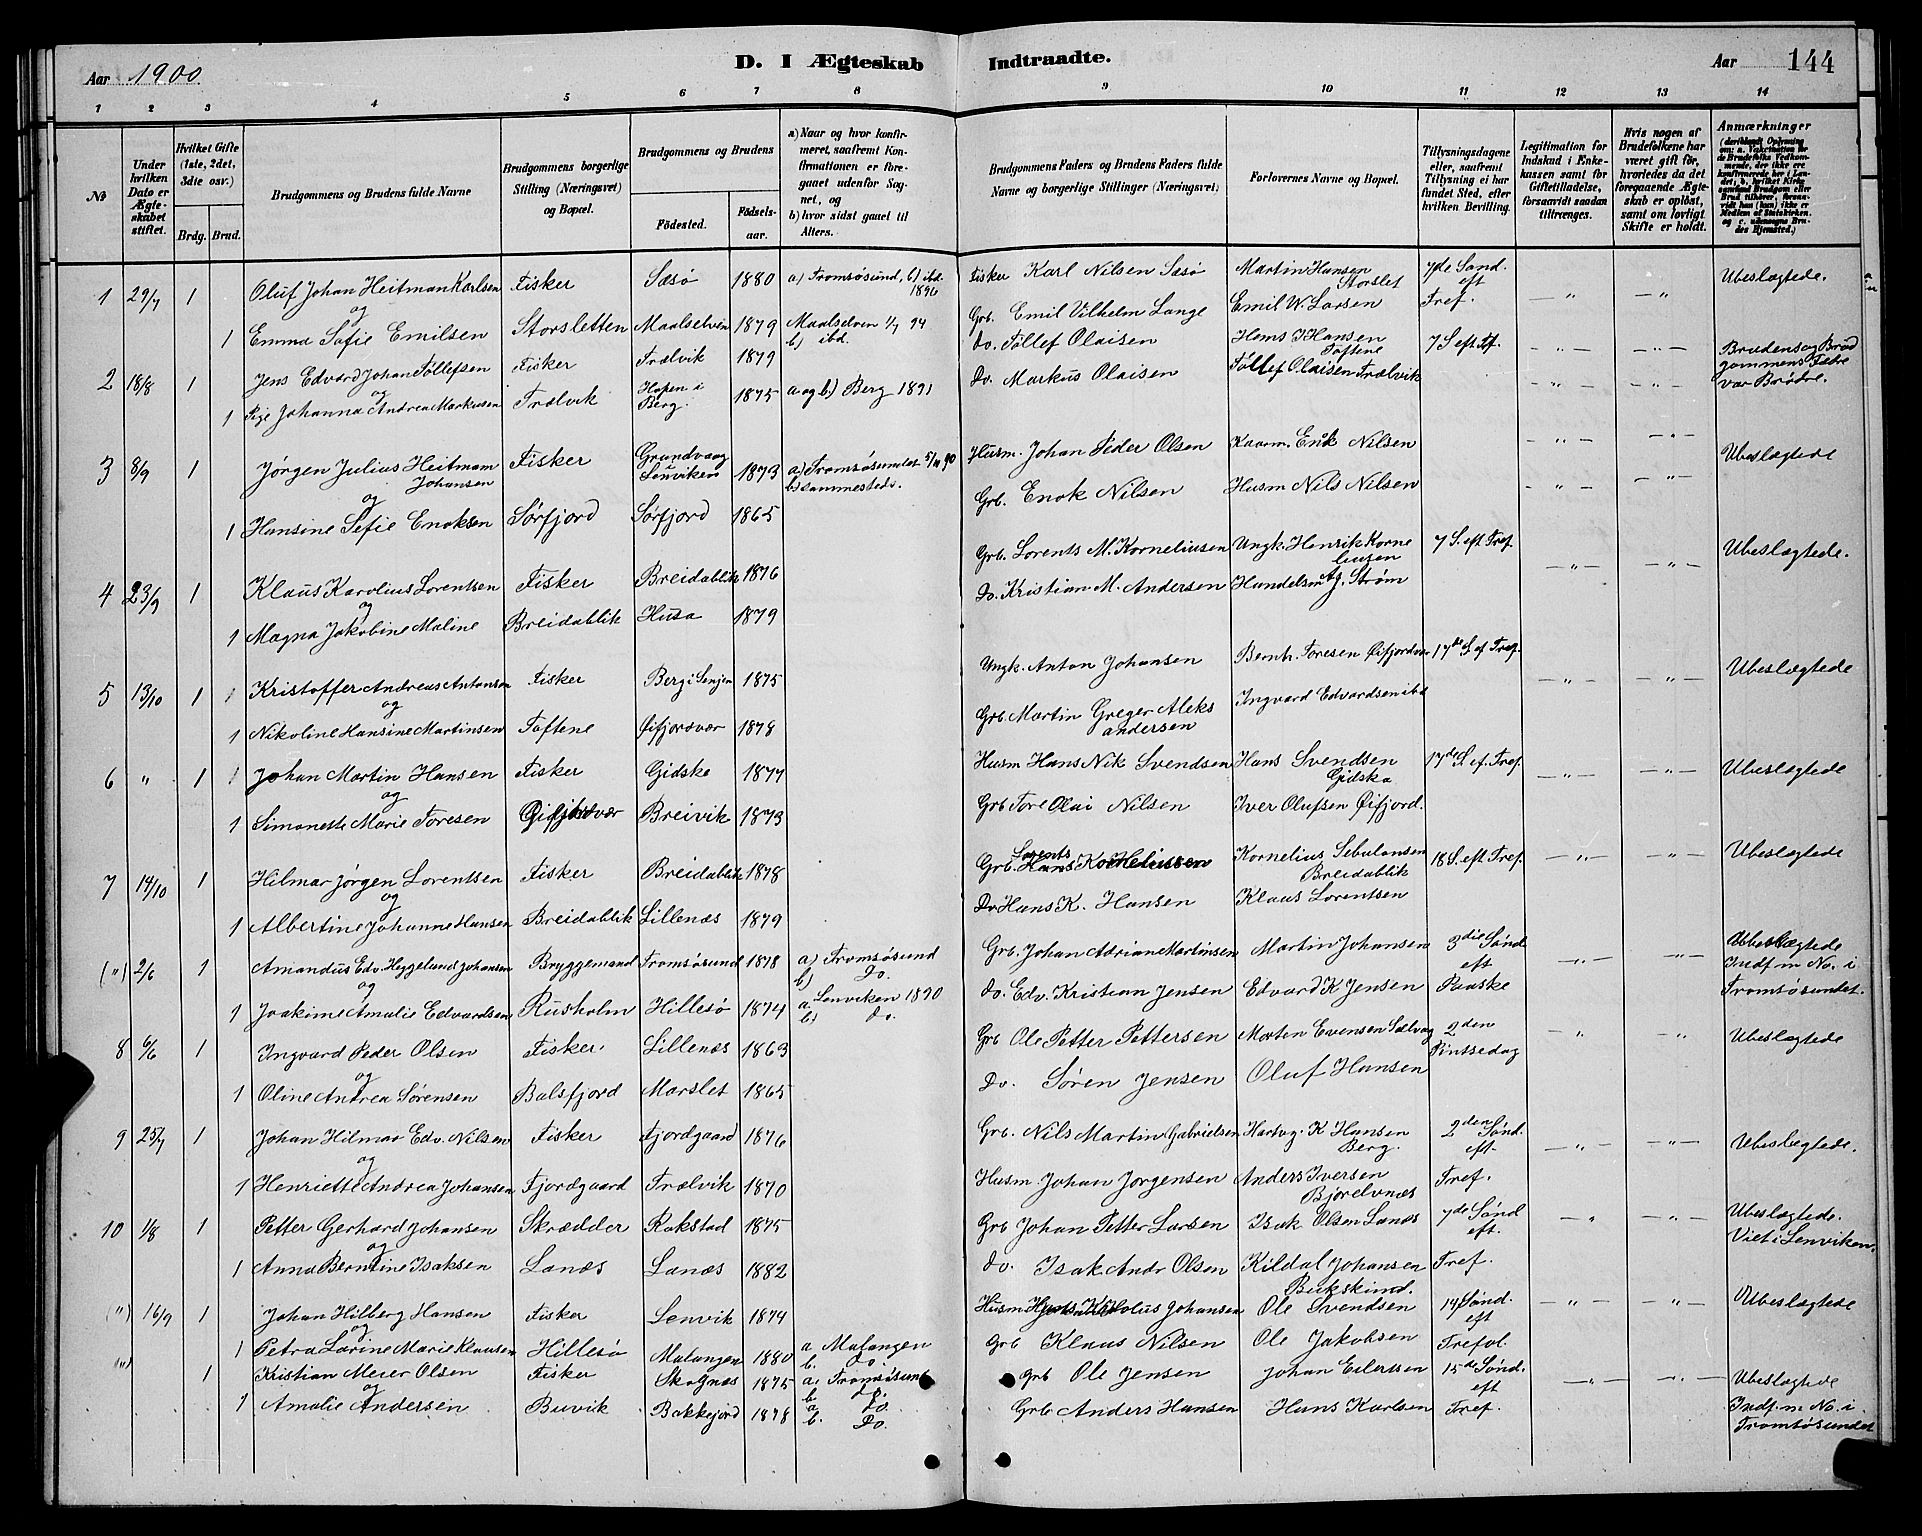 Aar 1900.
D. I Ægteskab Indtraadte.
Aar 144
1 2 3 4 5 6 7 8 9 10 11 12 13 14
№
Under hvilken Dato er Ægteskabet stiftet.
Hvilket Gifte (1ste, 2det, 3die osv.)
Brdg. Brud.
Brudgommens og Brudens fulde Navne
Brudgommens borgerlige Stilling (Næringsvei) og Bopæl.
Brudgommens og Brudens
Fødested.
Fødselsaar.
a) Naar og hvor konfirmeret, saafremt Konfirmationen er foregaaet udenfor Sognet, og
b) hvor sidst gaaet til Alters.
Brudgommens Faders og Brudens Faders fulde Navne og borgerlige Stillinger (Næringsvei)
Forlovernes Navne og Bopæl.
Tillysningsdagene eller, saafremt Tillysning ei har fundet Sted, efter hvilken Bevilling.
Legitimation for Indskud i Enkekassen samt for Giftetilladelse, forsaavidt saadan tiltrænges.
Hvis nogen af Brudefolkene har været gift før, hvorledes da det foregaaende Ægteskab er opløst, samt om lovligt Skifte er holdt.
Anmærkninger
1 29/7 1 Oluf Johan Heitman Karlsen Fisker Sæsø 1880 a) Tromsøsund, b) ibd. 1896 Fisker Karl Nilsen Sæsø Martin Hansen Storslet 7de Sønd. eft — " — — " — Ubeslægtede.
og
1 Emma Sofie Emilsen Storsletten Maalselven 1879 Maalselven 1/7 94 b) ibd. Grb. Emil Vilhelm Lange Emil W. Larsen Tref.
2 18/8 1 Jens Edvard Johan Tøllefsen Fisker Trælvik 1879 Do. Tøllef Olaisen Hans J Hansen Toftene 7 S eft Tf. — " — — " — Brudens og Brud
gommens Fedre
var Brødre.
og
1 Pige Johanna Andrea Markusen Trælvik Hopen i Berg. 1875 a og b) Berg 1891 Do. Markus Olaisen Tøllef Olaisen Trælvik — " — — " —
3 8/9 1 Jørgen Julius Heitmam Johansen Fisker Grundvaag i Lenviken 1873 a) Tromsøsundet 5/10 90 b) sammesteds. Husm. Johan Peder Olsen Kaarm. Enok Nilsen — " — — " — Ubeslægtede
og
1 Hansine Sefie Enoksen Sørfjord Sørfjord 1865 Grb. Enok Nilsen Husm Nils Nilsen — " — — " —
4 23/9 1 Klaus Karolius Lorentsen Fisker Breidablik 1876 Grb. Lorents M. Korneliusen Ungk. Henrik Korne
liusen 7 S. eft Tref. — " — — " — Ubeslægtede.
og
1 Magna Jakobine Maline Breidablik Husa 1879 Do. Kristian M. Andersen Handelsm Aj. Strøm
5 13/10 1 Kristoffer Andreas Antonsen Fisker Berg i Senjen 1875 Ungk. Anton Johansen Bernh. Toresen Øifjordvær 17de S ef Tref. — " — — " — Ubeslægtede
og
1 Nikoline Hansine Martinsen Toftene Øifjordvær 1878 Grb. Martin Greger Aleks
andersen Ingvard Edvardsen ibd
6 " 1 Johan Martin Hansen Fisker Gidske 1877 Husm Hans Nik Svendsen Hans Svendsen Gidska 17de S. ef. Tref. — " — — " — Ubeslægtede
og
1 Simonette Marie Toresen Øifjordvær Breivik 1873 Grb Tore Olai Nilsen Iver Olufsen Øifjord.
7 14/10 1 Hilmar Jørgen Lorentsen Fisker Breidablik 1878 Grb. Lorents Korneliussen Kornelius Sebulonsen Breidablik 18 S. eft Tref. — " — — " — Ubeslægtede
og
1 Albertine Johanne Hansen Breidablik Lillenæs 1879 Do Hans K. Hansen Klaus Lorentsen
(") 2/6 1 Amandus Edv. Heggelund Johansen Bryggemand Tromsøsund 1878 a) Tromsøsund b) Do. Grb. Johan Adrian Martinsen Martin Johansen 3die Sønd eft — " — — " — Ubeslægtede
Indf. m No. i
Tromsøsundet.
og
1 Joakime Amalie Edvardsen Rusholm Hillesø 1874 a. Lenviken 1890 b) Do. Do. Edv. Kristian Jensen Edvard K Jensen Paaske
8 6/6 1 Ingvard Peder Olsen Fisker. Lillenæs 1863 Grb Ole Petter Pettersen Morten Evensen Sælvag 2den Pintsedag — " — " — Ubeslægtede
og
1 Oline Andrea Sørensen Balsfjord Marslet 1865 Do. Søren Jensen Oluf Hansen
9 25/7 1 Johan Hilmar Edv. Nilsen Fisker Fjordgaard 1876 Grb. Nils Martin Gabrielsen Hartvig. K Hansen Berg. 2den Sønd. eft. — " — — " — Ubeslægtede.
og
1 Henriette Andrea Johansen Fjordgaard Trælvik 1870 Husm. Johan Jørgensen Anders Iversen Bjorelvnæs Tref.
10 1/8 1 Petter Gerhard Johansen Skrædder Rakstad 1875 Grb Johan Petter Larsen Isak Olsen Lanæs 7de Sønd eft. — " — " — Ubeslægtede.
Viet i Lenviken.
og
1 Anna Berntine Isaksen Lanæs Lanæs 1882 Do. Isak Andr Olsen Kildal Johansen Bukskind. Tref.
(") 16/9 1 Johan Hilberg Hansen Fisker Lenvik 1874 Husm Johansen Ole Svendsen 14 Sønd. eft — " — — " — Ubeslægtede
og
1 Petra Lorine Marie Klausen Hillesø Malangen 1880 a. Malangen b. Do. Grb Klaus Nilsen Ole Jakobsen Trefol.
(") 1 Kristian Meier Olsen Fisker Skognæs 1875 a. Tromsøsund b. do. Grb Ole Jensen Johan Eilertsen 15de Sønd. eft — " — — " — Ubeslægtede
Indf. m No. i
Tromsøsundet
og
1 Amalie Andersen Buvik Bakkejord 1878 a. do b. Do. Grb Anders Hansen Hans Karlsen Tref.